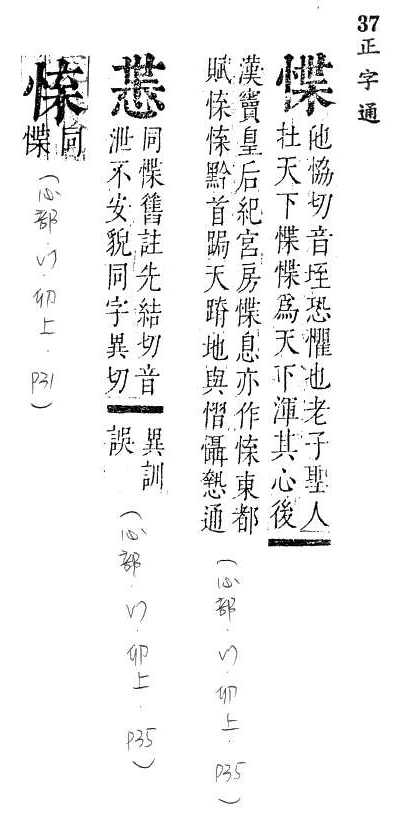 37正字通
惵
他協切音垤恐懼也老子聖人
在天下惵惵爲天下渾其心後
漢竇皇后紀宮房惵息亦作東都
賦黔首跼天蹐地與慴懾慹通
(心部.卯上.P35)
同惵舊註先結切音
泄不安貌同字異切
異訓
誤
(心部.卯上.P35)
同
惵
(心部.卯上.P31)